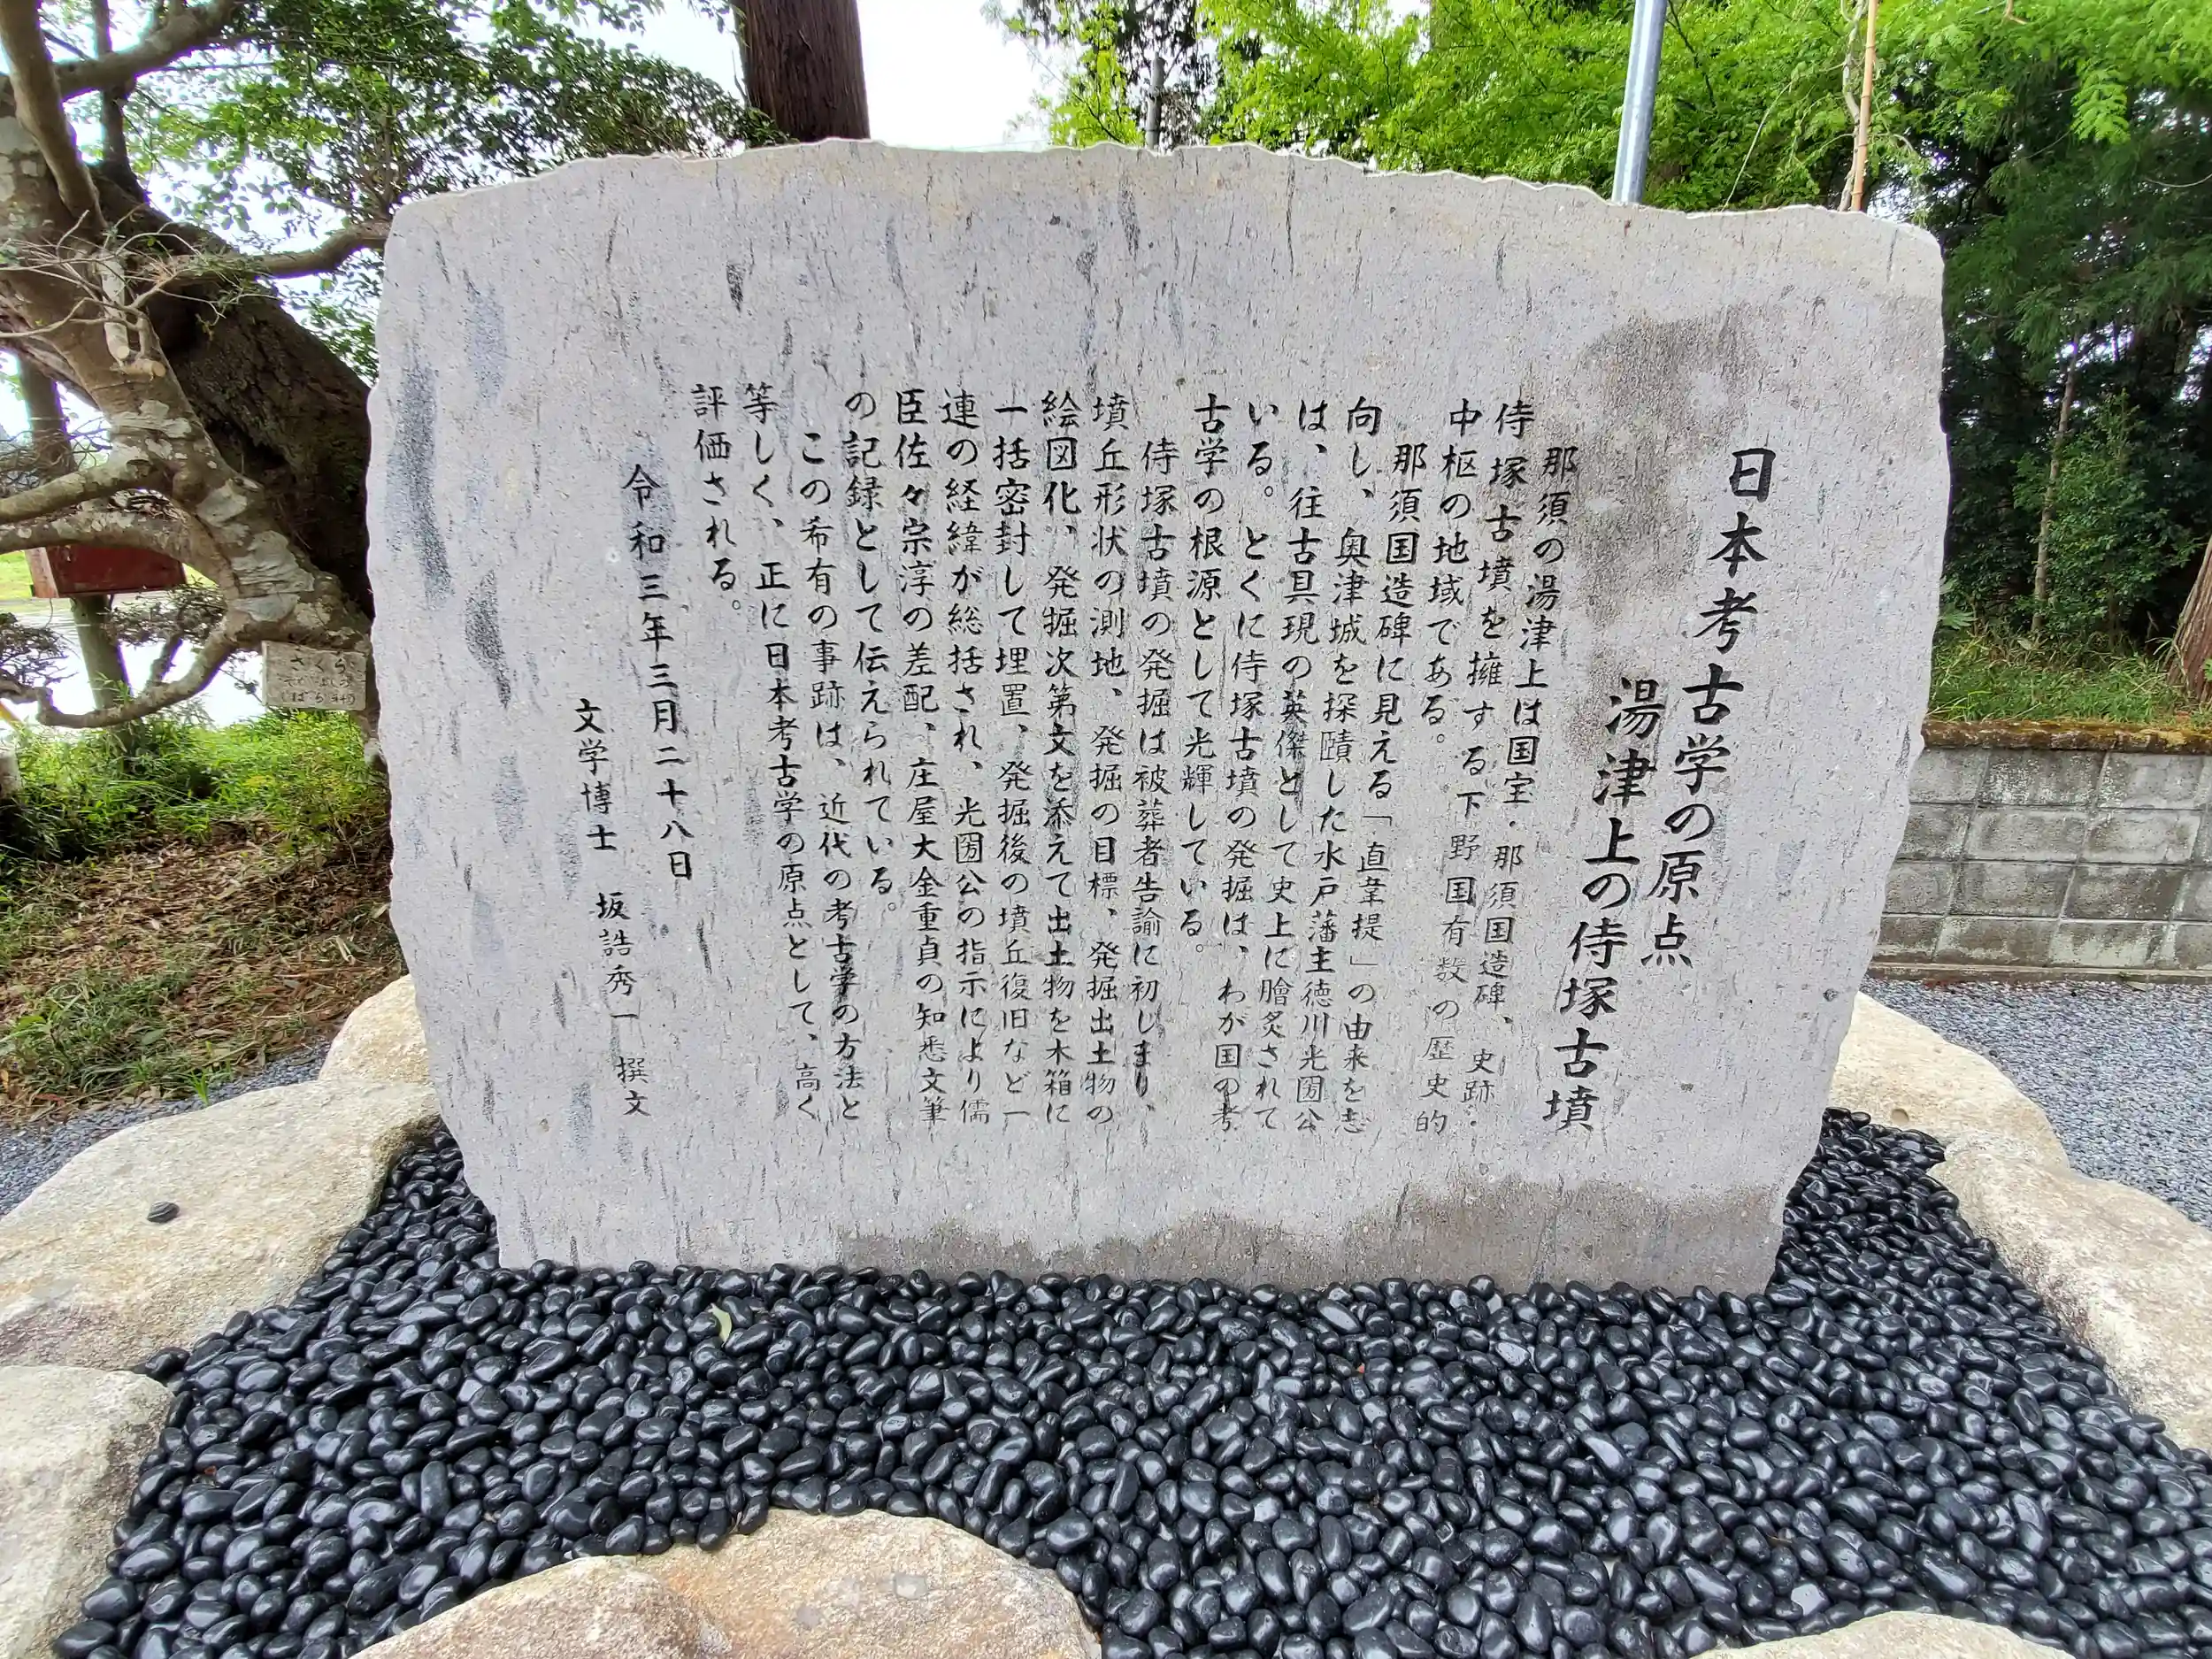 日本考古学の原点
湯津上の侍塚古墳
那須の湯津上は国宝・那須国造碑、史跡・
侍塚古墳を擁する下野国有数の歴史的
中枢の地域である。
那須国造碑に見える「直韋提」の由来を志
向し、奥津城を探賾した水戸藩主徳川光圀公
は、往古具現の英傑として史上に膾炙されて
いる。とくに侍塚古墳の発掘は、わが国の考
古学の根源として光輝している。
侍塚古墳の発掘は被葬者告諭に初しまり、
墳丘形状の測地、発掘の目標、発掘出土物の
絵図化、発掘次第文を添えて出土物を木箱に
一括密封して埋置、発掘後の墳丘復旧など一
連の経緯が総括され、光圀公の指示により儒
臣佐々宗淳の差配、庄屋大金重貞の知悉文筆
の記録として伝えられている。
この希有の事跡は、近代の考古学の方法と
等しく、正に日本考古学の原点として、高く
評価される。
令和三年三月二十八日
文学博士 坂誥秀一 撰文
さくら